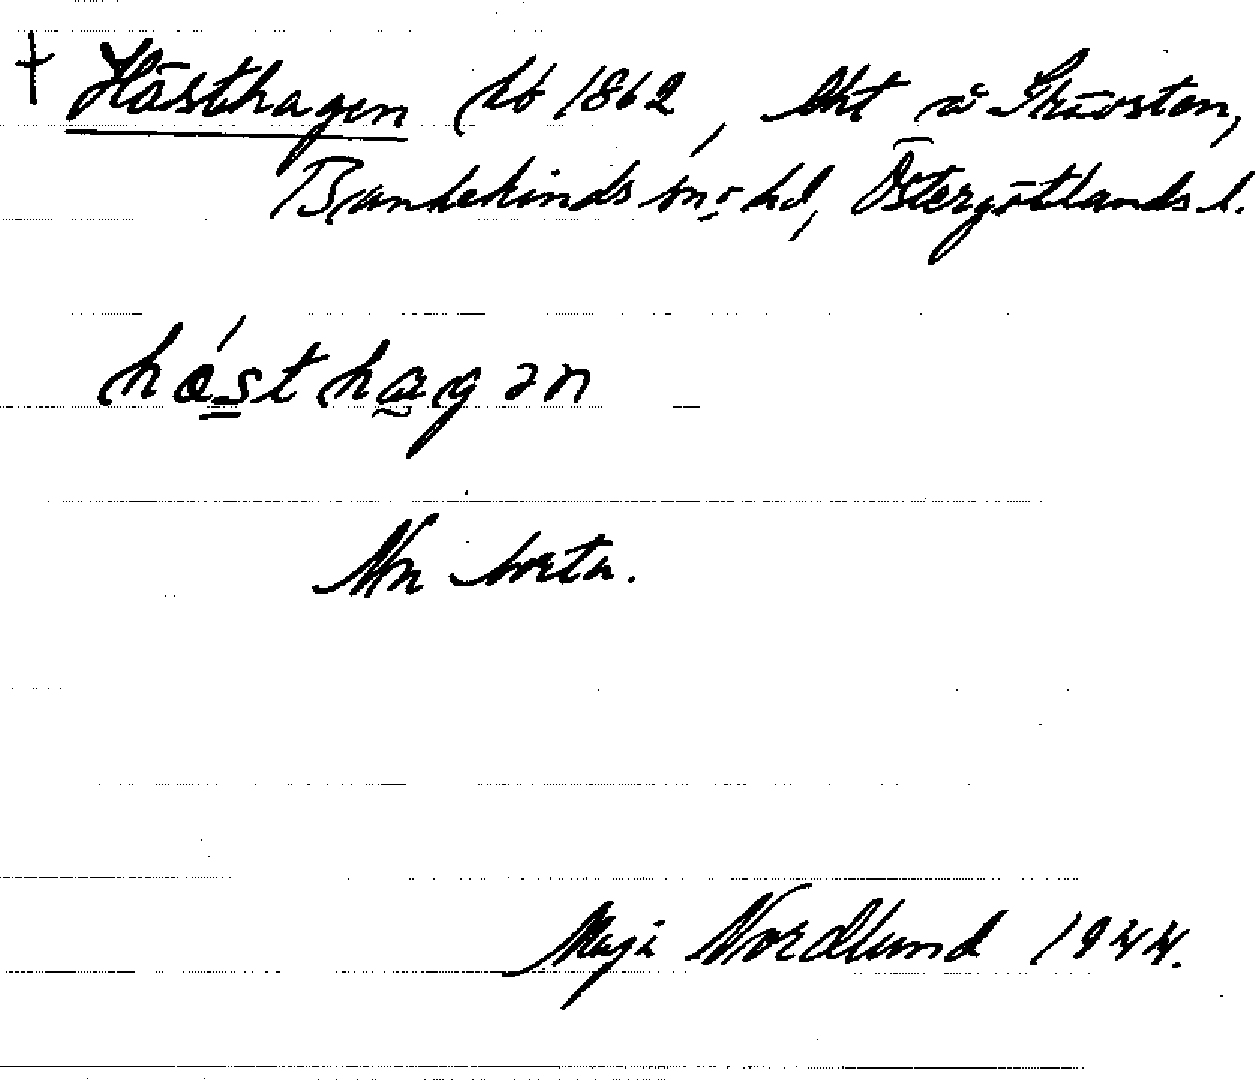 † Hästhagen hb 1862, lht u Skövsten,
Bankekinds sn o hd, Östergötlands l.
hästhagən
Mn borta.
Maja Nordlund 1944.